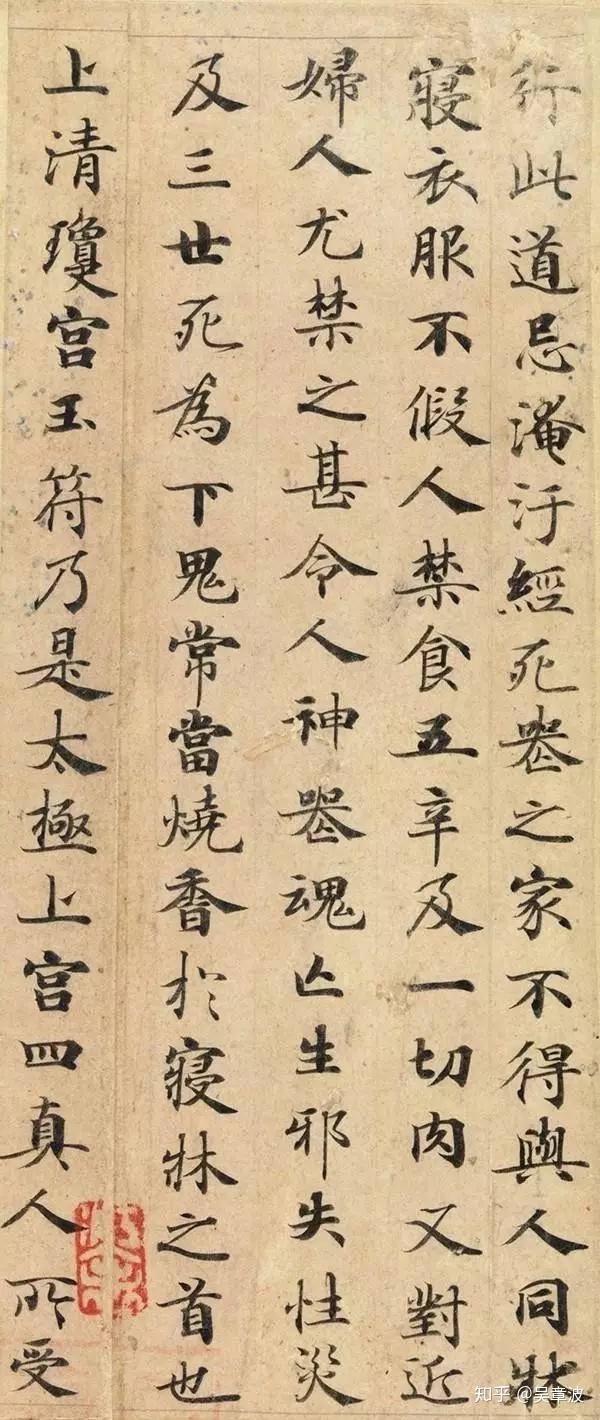 行此道忌淹汙經死喪之家不得與人同牀
寢衣服不假人禁食五辛及一切肉又對近
婦人尤禁之甚令人神喪魂亡生邪失性災
及三世死為下鬼常當燒香於寢牀之首也
上清瓊宮玉符乃是太極上宮四真人所受
知乎 @吴章波